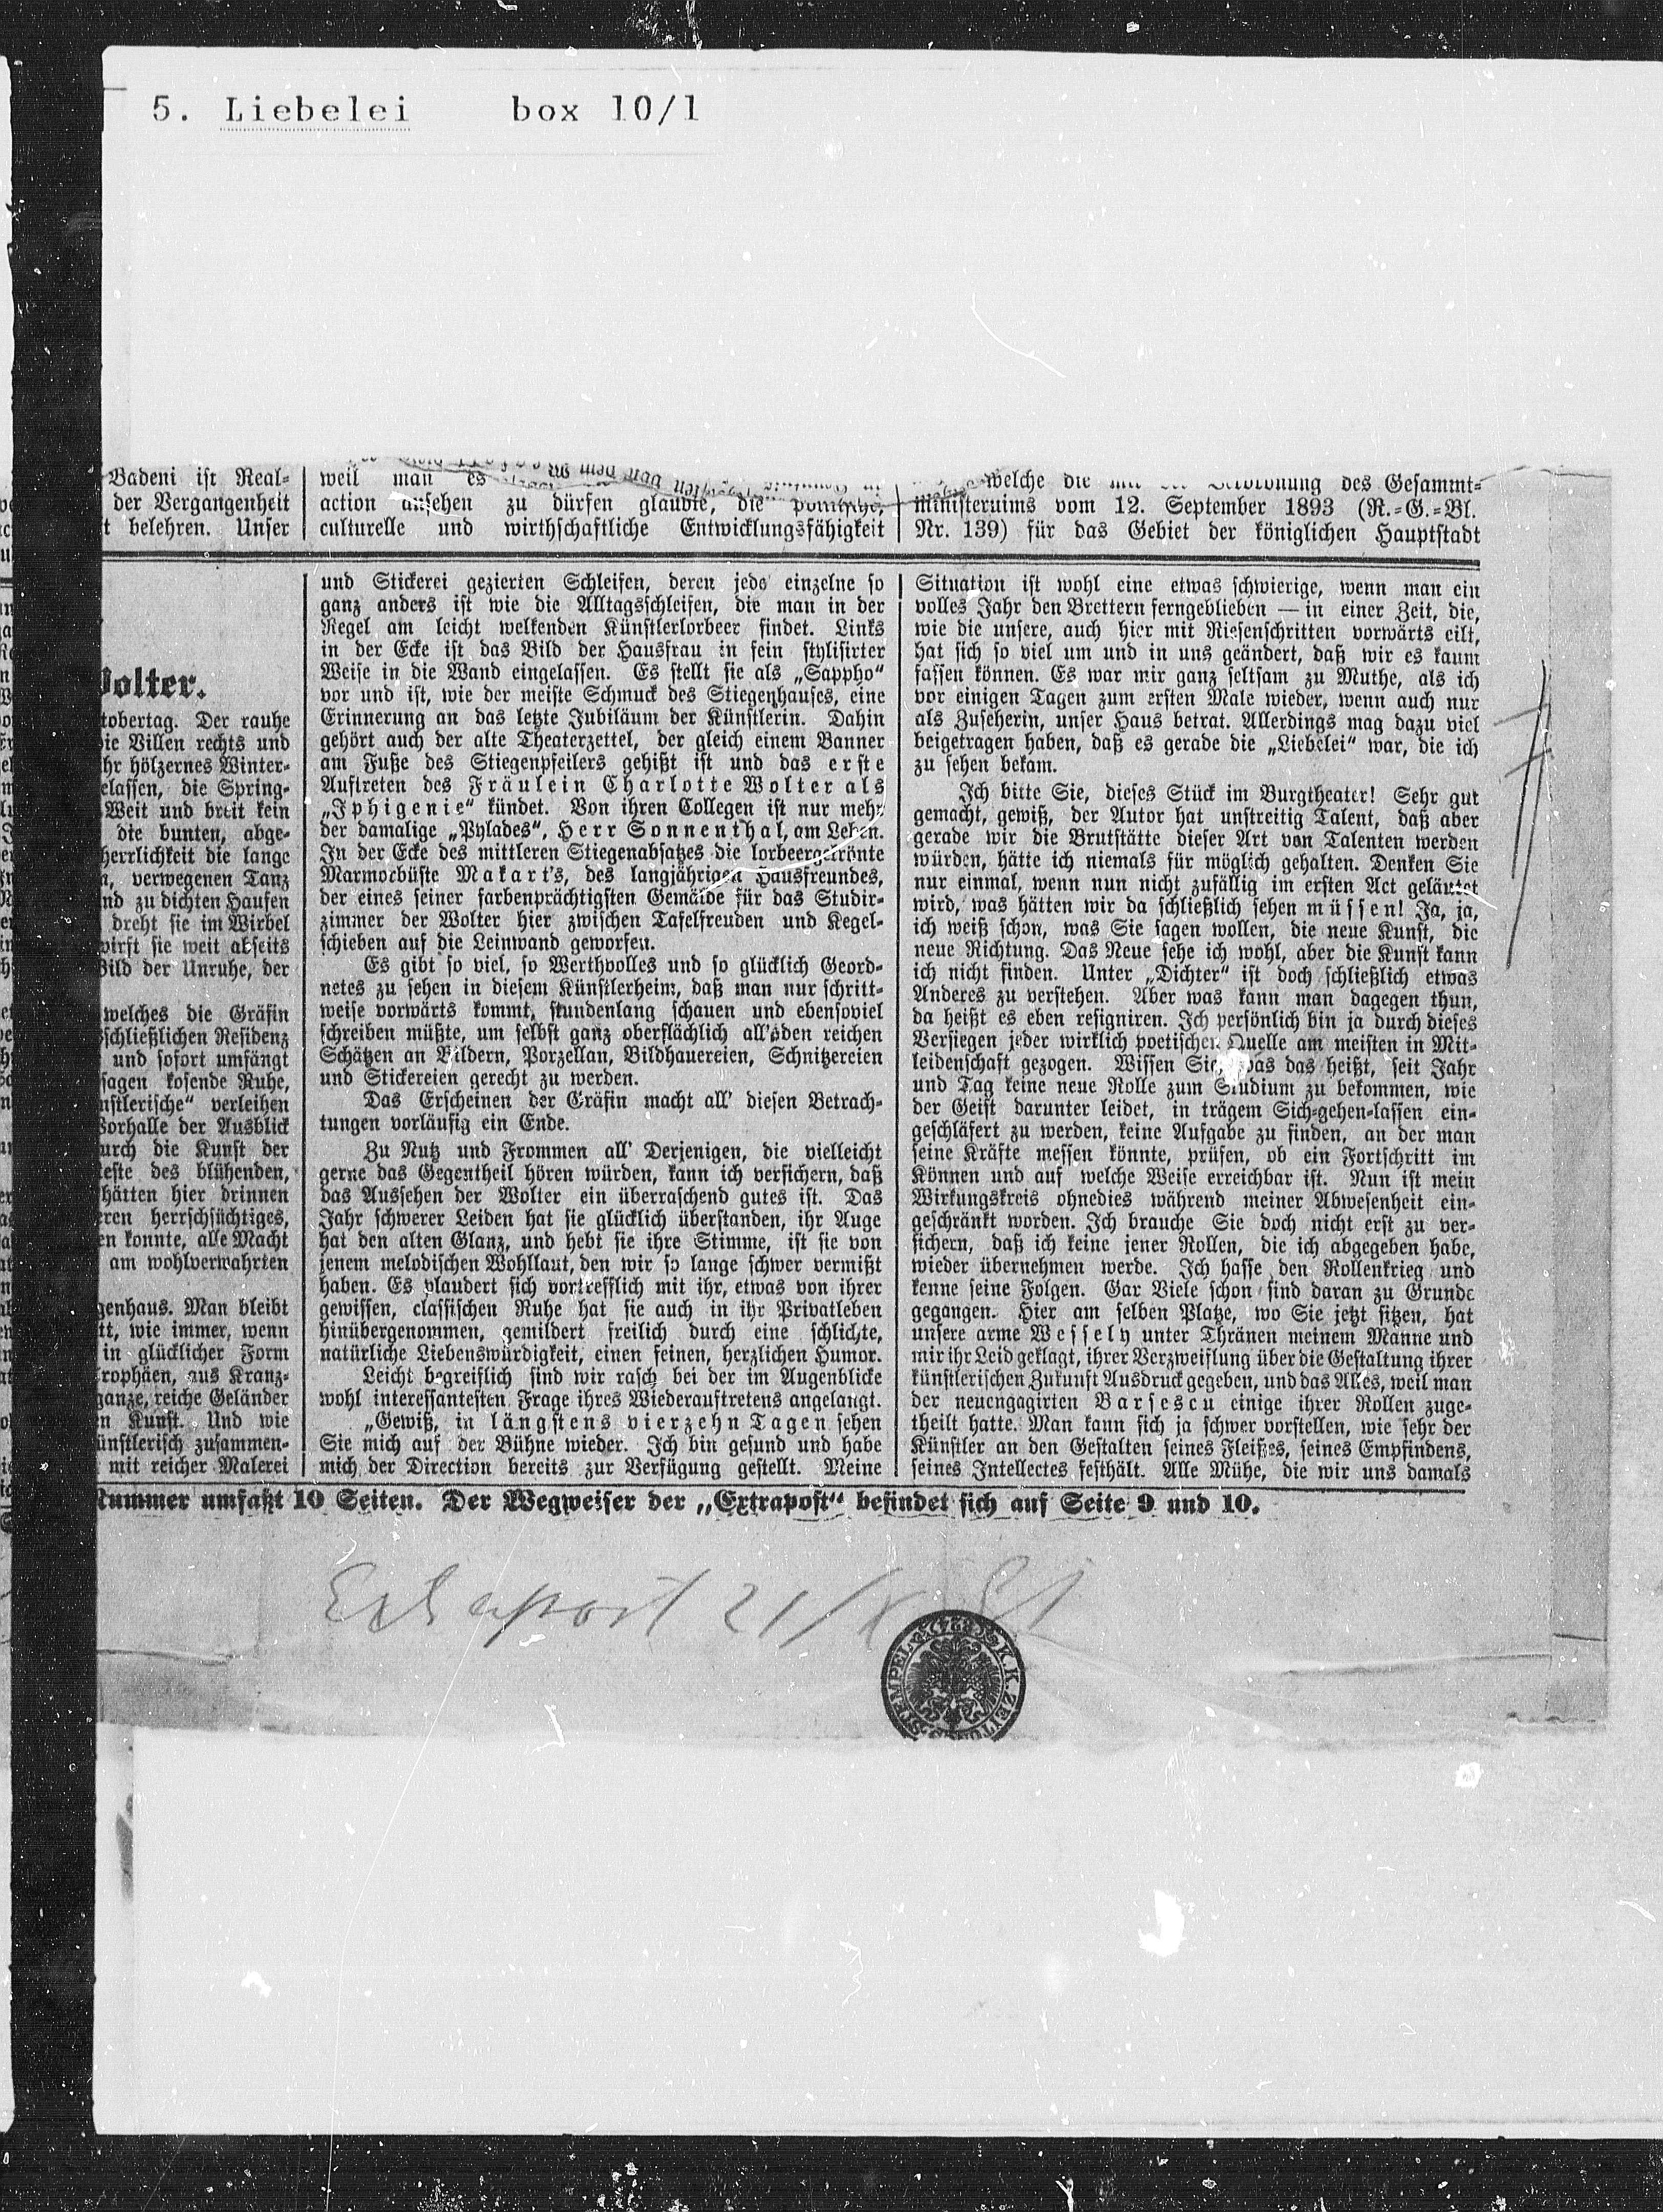 5. Liebelei box 10/1
Badeni ist Real-
der Vergangenheit
t belehren. Unser
weil man es
action ansehen zu dürfen glaubte, die
culturelle und wirthschaftliche Entwicklungsfähigkeit
welche die des Gesammt-
ministeruims vom 12. September 1893 (R.-G.-Bl.
Nr. 139) für das Gebiet der königlichen Hauptstadt
Wolter.
tobertag. Der rauhe
ie Villen rechts und
hr hölzernes Winter-
elassen, die Spring-
Weit und breit kein
die bunten, abge-
herrlichkeit die lange
n, verwegenen Tanz
nd zu dichten Haufen
dreht sie im Wirbel
wirft sie weit abseits
Bild der Unruhe, der
welches die Gräfin
schließlichen Residenz
und sofort umfängt
sagen kosende Ruhe,
nstlerische" verleihen
Vorhalle der Ausblick
urch die Kunst der
este des blühenden,
hätten hier drinnen
eren herrschsüchtiges,
en konnte, alle Macht
am wohlverwahrten
genhaus. Man bleibt
tt, wie immer, wenn
in glücklicher Form
rophäen, aus Kranz-
ganze, reiche Geländer
n Kunst. Und wie
ünstlerisch zusammen-
mit reicher Malerei
und Stickerei gezierten Schleifen, deren jede einzelne so
ganz anders ist wie die Alltagsschleifen, die man in der
Regel am leicht welkenden Künstlerlorbeer findet. Links
in der Ecke ist das Bild der Hausfrau in fein stylisirter
Weise in die Wand eingelassen. Es stellt sie als „Sappho“
vor und ist, wie der meiste Schmuck des Stiegenhauses, eine
Erinnerung an das letzte Jubiläum der Künstlerin. Dahin
gehört auch der alte Theaterzettel, der gleich einem Banner
am Fuße des Stiegenpfeilers gehißt ist und das erste
Auftreten des Fräulein Charlotte Wolter als
„Iphigenie“ kündet. Von ihren Collegen ist nur mehr
der damalige „Pylades“, Herr Sonnenthal, am Leben.
In der Ecke des mittleren Stiegenabsatzes die lorbeergekrönte
Marmorbüste Makart's, des langjährigen Hausfreundes,
der eines seiner farbenprächtigsten Gemälde für das Studir-
zimmer der Wolter hier zwischen Tafelfreuden und Kegel-
schieben auf die Leinwand geworfen.
Es gibt so viel, so Werthvolles und so glücklich Geord-
netes zu sehen in diesem Künstlerheim, daß man nur schritt-
weise vorwärts kommt, stundenlang schauen und ebensoviel
schreiben müßte, um selbst ganz oberflächlich all' den reichen
Schätzen an Bildern, Porzellan, Bildhauereien, Schnitzereien
und Stickereien gerecht zu werden.
Das Erscheinen der Gräfin macht all' diesen Betrach-
tungen vorläufig ein Ende.
Zu Nutz und Frommen all' Derjenigen, die vielleicht
gerne das Gegentheil hören würden, kann ich versichern, daß
das Aussehen der Wolter ein überraschend gutes ist. Das
Jahr schwerer Leiden hat sie glücklich überstanden, ihr Auge
hat den alten Glanz, und hebt sie ihre Stimme, ist sie von
jenem melodischen Wohllaut, den wir so lange schwer vermißt
haben. Es plaudert sich vortrefflich mit ihr, etwas von ihrer
gewissen, classischen Ruhe hat sie auch in ihr Privatleben
hinübergenommen, gemildert freilich durch eine schlichte,
natürliche Liebenswürdigkeit, einen feinen, herzlichen Humor.
Leicht begreiflich sind wir rasch bei der im Augenblicke
wohl interessantesten Frage ihres Wiederauftretens angelangt.
„Gewiß, in längstens vierzehn Tagen sehen
Sie mich auf der Bühne wieder. Ich bin gesund und habe
mich der Direction bereits zur Verfügung gestellt. Meine
Situation ist wohl eine etwas schwierige, wenn man ein
volles Jahr den Brettern ferngeblieben — in einer Zeit, die,
wie die unsere, auch hier mit Riesenschritten vorwärts eilt,
hat sich so viel um und in uns geändert, daß wir es kaum
fassen können. Es war mir ganz seltsam zu Muthe, als ich
vor einigen Tagen zum ersten Male wieder, wenn auch nur
als Zuseherin, unser Haus betrat. Allerdings mag dazu viel
beigetragen haben, daß es gerade die „Liebelei“ war, die ich
zu sehen bekam.
Ich bitte Sie, dieses Stück im Burgtheater! Sehr gut
gemacht, gewiß, der Autor hat unstreitig Talent, daß aber
gerade wir die Brutstätte dieser Art von Talenten werden
würden, hätte ich niemals für möglich gehalten. Denken Sie
nur einmal, wenn nun nicht zufällig im ersten Act geläutet
wird, was hätten wir da schließlich sehen müssen! Ja, ja,
ich weiß schon, was Sie sagen wollen, die neue Kunst, die
neue Richtung. Das Neue sehe ich wohl, aber die Kunst kann
ich nicht finden. Unter „Dichter“ ist doch schließlich etwas
Anderes zu verstehen. Aber was kann man dagegen thun,
da heißt es eben resigniren. Ich persönlich bin ja durch dieses
Versiegen jeder wirklich poetischen Quelle am meisten in Mit-
leidenschaft gezogen. Wissen Sie was das heißt, seit Jahr
und Tag keine neue Rolle zum Studium zu bekommen, wie
der Geist darunter leidet, in trägem Sich-gehen-lassen ein-
geschläfert zu werden, keine Aufgabe zu finden, an der man
seine Kräfte messen könnte, prüfen, ob ein Fortschritt im
Können und auf welche Weise erreichbar ist. Nun ist mein
Wirkungskreis ohnedies während meiner Abwesenheit ein-
geschränkt worden. Ich brauche Sie doch nicht erst zu ver-
sichern, daß ich keine jener Rollen, die ich abgegeben habe,
wieder übernehmen werde. Ich hasse den Rollenkrieg und
kenne seine Folgen. Gar Viele schon sind daran zu Grunde
gegangen. Hier am selben Platze, wo Sie jetzt sitzen, hat
unsere arme Wessely unter Thränen meinem Manne und
mir ihr Leid geklagt, ihrer Verzweiflung über die Gestaltung ihrer
künstlerischen Zukunft Ausdruck gegeben, und das Alles, weil man
der neuengagirten Barsescu einige ihrer Rollen zuge-
theilt hatte. Man kann sich ja schwer vorstellen, wie sehr der
Künstler an den Gestalten seines Fleißes, seines Empfindens,
seines Intellectes festhält. Alle Mühe, die wir uns damals
Nummer umfaßt 10 Seiten. Der Wegweiser der „Extrapost“ befindet sich auf Seite 9 und 10.
Extrapost 21/X
STEMPEL K.K. ZEITUNGS